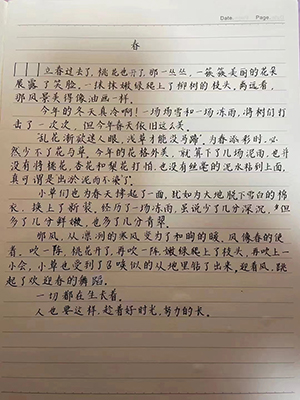 Date. Page.
春
立春过去了，桃花也开了那一丛丛，一簇簇美丽的花朵
展露了笑脸，一抹抹嫩绿爬上了柳树的枝头，离远看，
那风景美得像油画一样。
今年的冬天真冷啊！一场场雪和一场冻雨，将树们打
击了一次次，但今年春天依旧这么美
"乱花渐欲迷人眼，浅草才能没马蹄"，为春添彩时，必
然少不了花与草，今年的花格外美，就算下了几场泥雨，也并
没有将桃花、杏花和梨花打怕，也没有丝毫的泥水粘到上面，
真可谓是出淤泥而不染了。
小草们也为春天撑起了一面，比如为大地脱下雪白的棉
衣，换上了新装，经历了一场冻雨，虽说少了几分深沉，但
多了几分鲜嫩，也多了几分青翠
那风，从凛冽的寒风变为了和煦的暖风，风像春的使
者，吹一阵，桃花开了，再吹一阵，嫩绿爬上了枝头，再吹上一
小会，小草也受到了召唤似的从地里钻了出来，迎着风，跳
起了欢迎春的舞蹈。
一切都在生长着。
人也要这样，趁着好时光，努力的长。